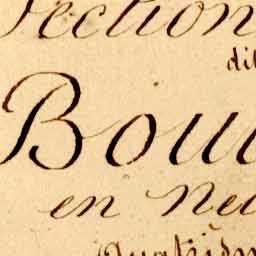 Section
dit
Bou
en neu
Quatrièm